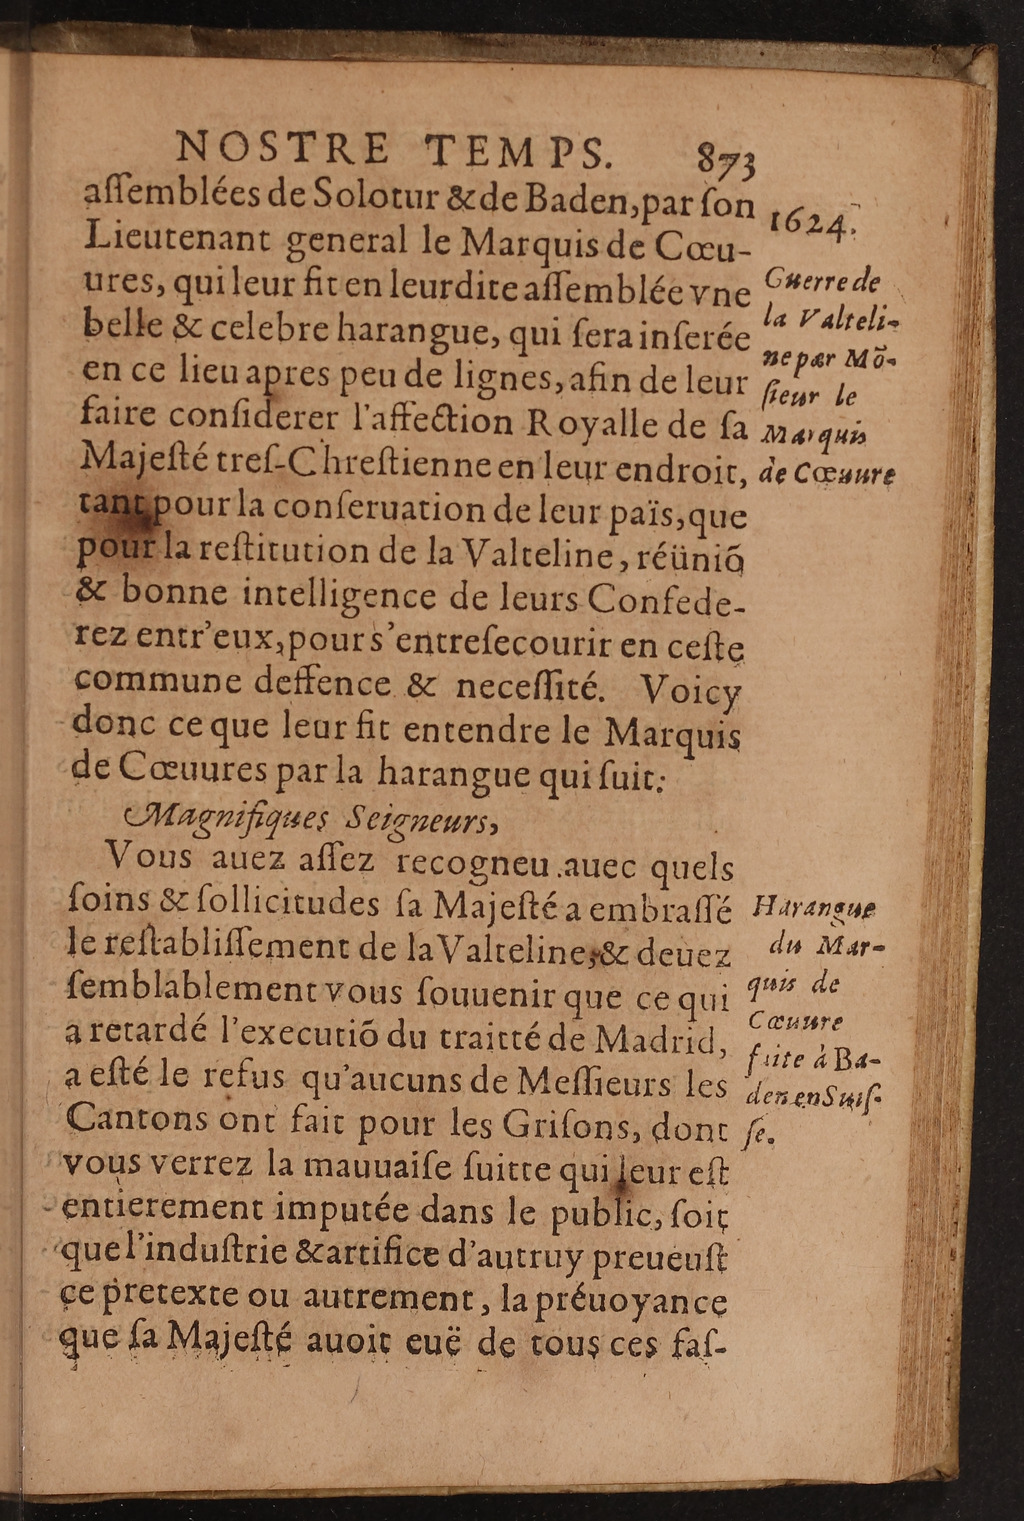 NOSTRE TEMPS. 873
aſſemblées de Solotur & de Baden, par ſon
Lieutenant general le Marquis de Cœu-
ures, qui leur fit en leurdite aſſemblée vne
belle & celebre harangue, qui ſera inſerée
en ce lieu apres peu de lignes, afin de leur
faire conſiderer l'affection Royalle de ſa
Majeſté treſ-Chreſtienne en leur endroit,
tant pour la conſeruation de leur païs, que
pour la reſtitution de la Valteline, réüniõ
& bonne intelligence de leurs Confede-
rez entr'eux, pour s'entreſecourir en ceſte
commune deffence & neceſſité. Voicy
donc ce que leur fit entendre le Marquis
de Cœuures par la harangue qui ſuit:
Magnifiques Seigneurs,
Vous auez aſſez recogneu auec quels
ſoins & ſollicitudes ſa Majeſté a embraſſé
le reſtabliſſement de la Valteline; & deuez
ſemblablement vous ſouuenir que ce qui
a retardé l'executiõ du traitté de Madrid,
a eſté le refus qu'aucuns de Meſſieurs les
Cantons ont fait pour les Griſons, dont
vous verrez la mauuaiſe ſuitte qui leur eſt
entierement imputée dans le public, ſoit
que l'induſtrie & artifice d'autruy preueuſt
ce pretexte ou autrement, la préuoyance
que ſa Majeſté auoit euë de tous ces faſ-
1624.
Guerre de
la Valteli-
ne par Mõ-
ſieur le
Marquis
de Cœuure
Harangue
du Mar-
quis de
Cœuure
faite à Ba-
den en Suiſ-
ſe.